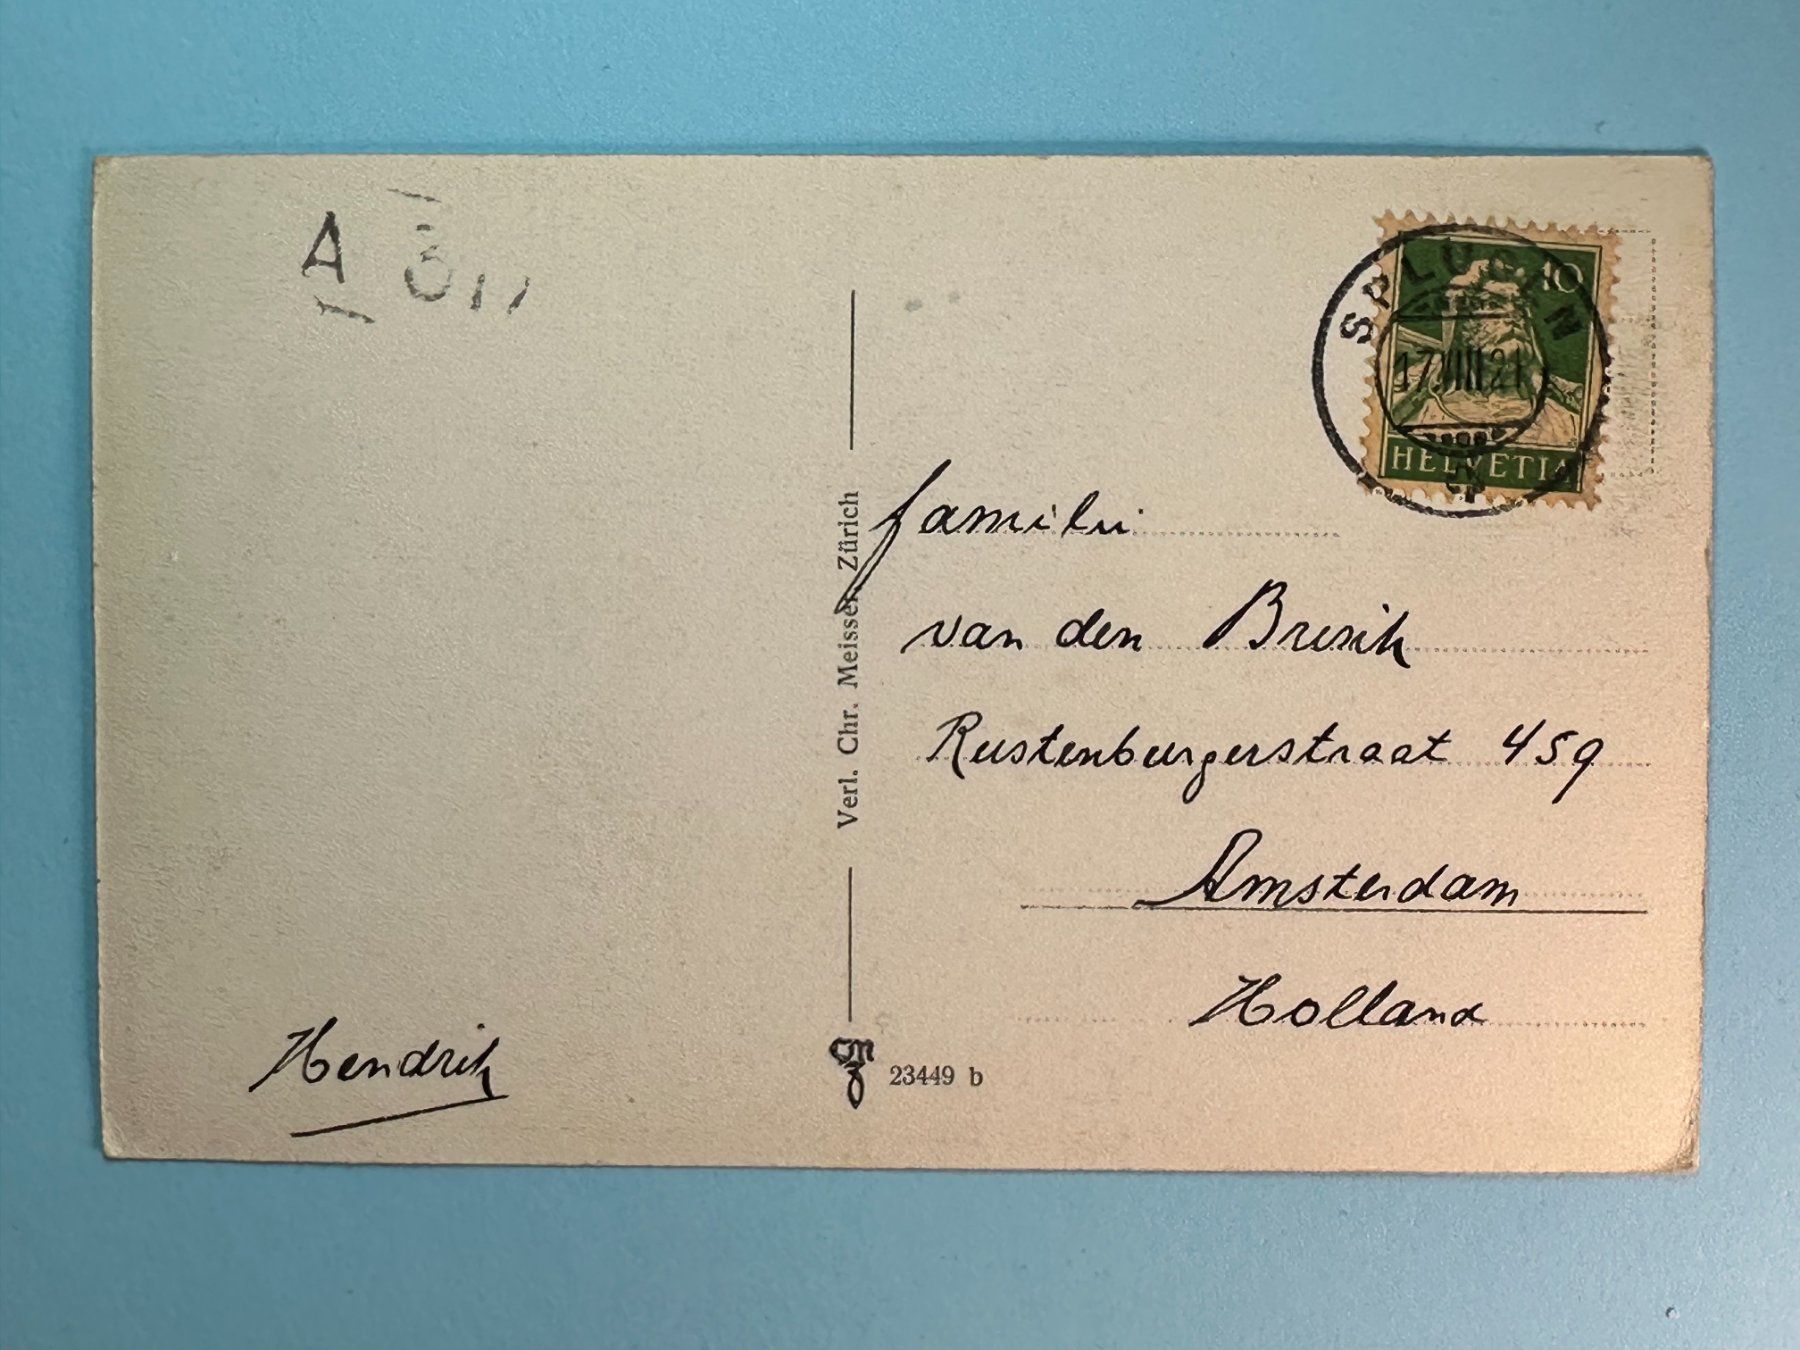 A 3
SPLÜGEN
10
17.VIII.21
HELVETIA
Verl. Chr. Meisser, Zürich
familie
van den
Rustenburgerstraat 459
Amsterdam
Holland
Hendrik
23449 b